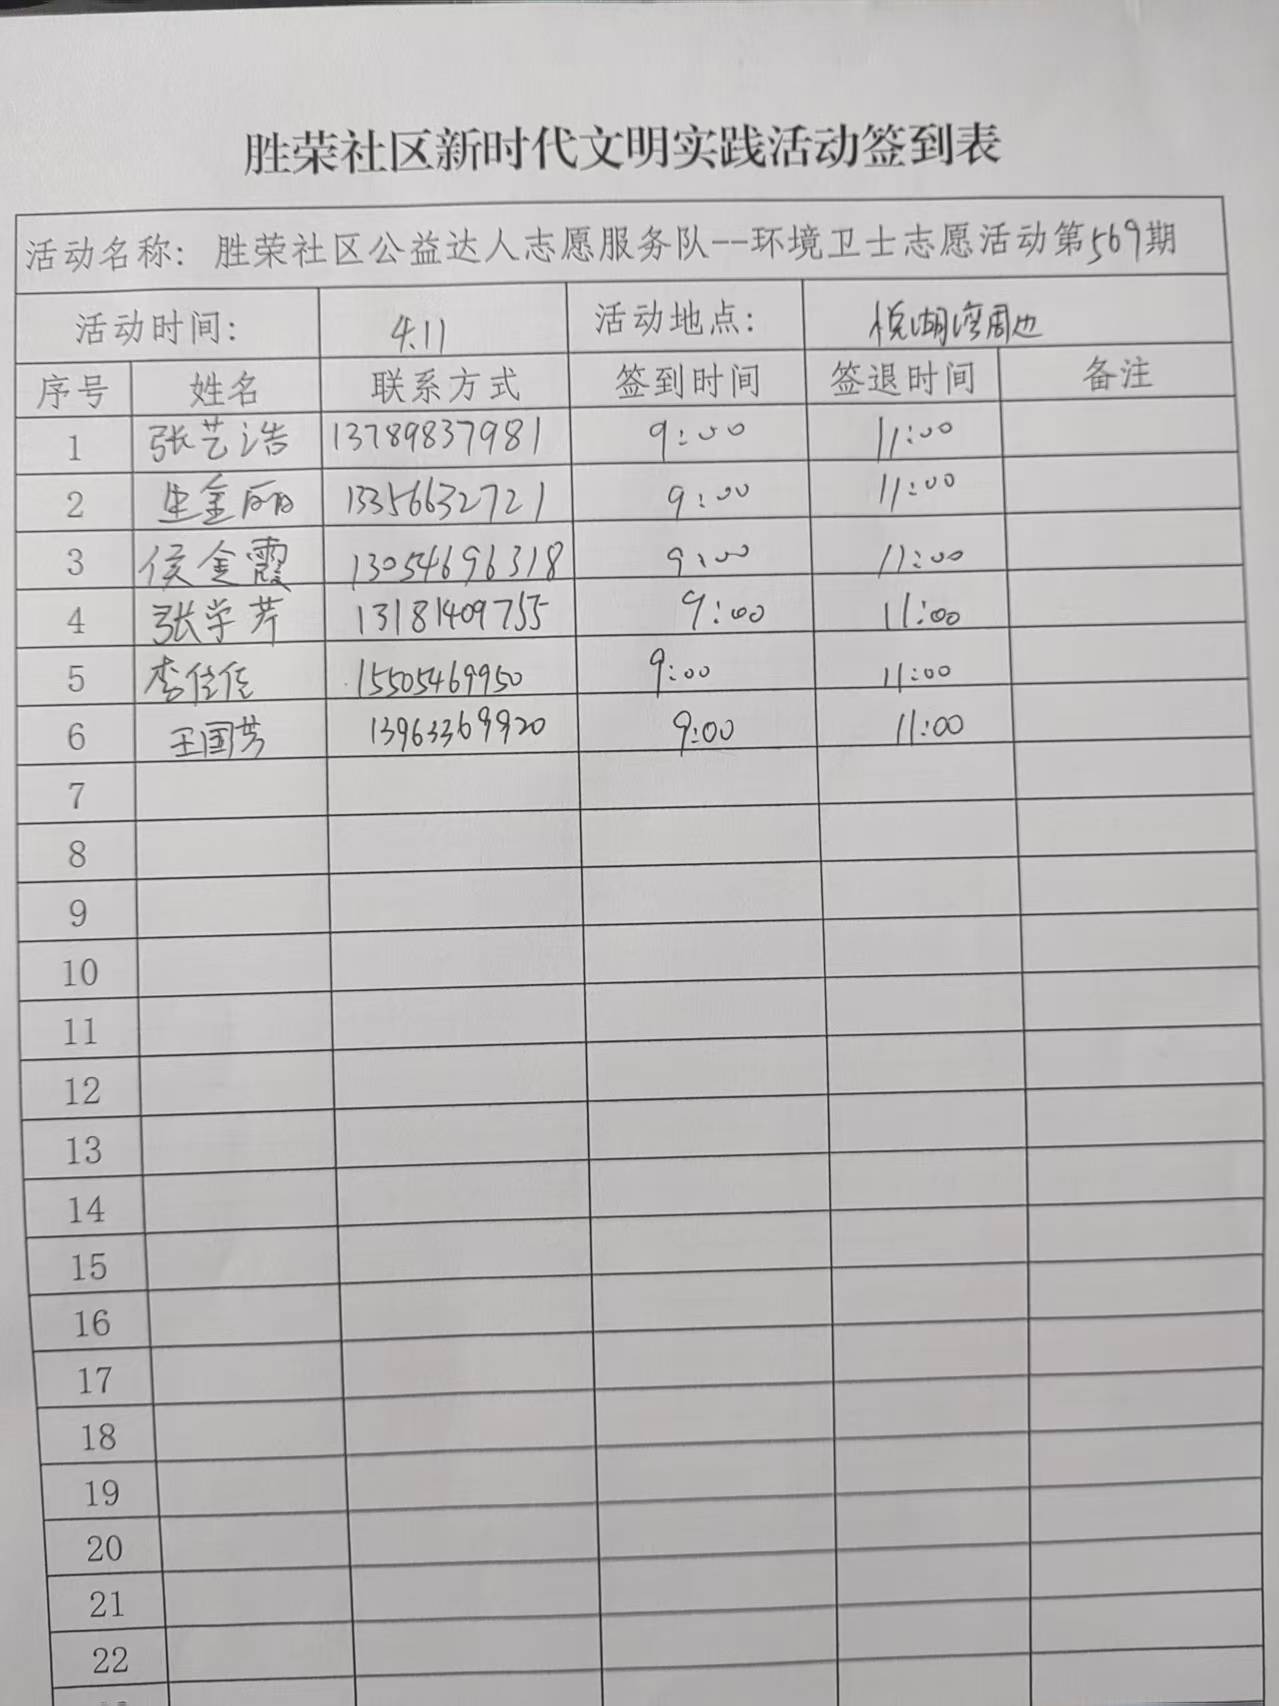 胜荣社区新时代文明实践活动签到表
活动名称：胜荣社区公益达人志愿服务队--环境卫士志愿活动第569期
活动时间： 4.11 活动地点： 悦湖湾周边
序号 姓名 联系方式 签到时间 签退时间 备注
1 张艺浩 13789837981 9:00 11:00
2 生金丽 13356632721 9:00 11:00
3 侯金霞 13054696318 9:00 11:00
4 张学芹 13181409755 9:00 11:00
5 李佳佳 15505469950 9:00 11:00
6 王国芳 13963369920 9:00 11:00
7
8
9
10
11
12
13
14
15
16
17
18
19
20
21
22